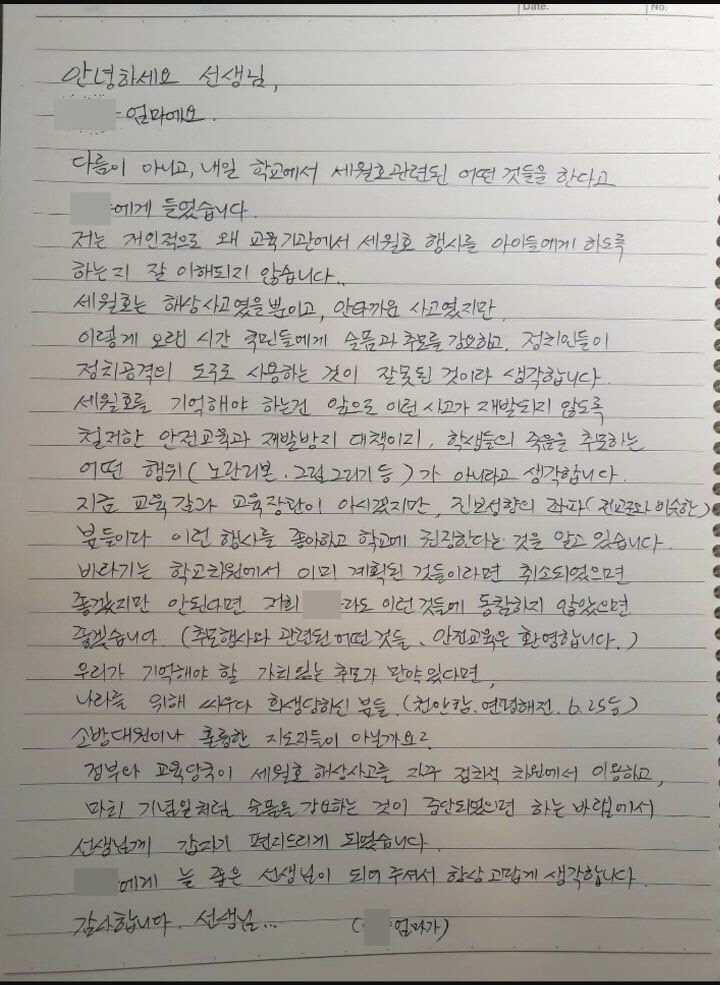 Date. No.
안녕하세요 선생님,
엄마에요.
다름이 아니고, 내일 학교에서 세월호관련된 어떤 것들을 한다고
에게 들었습니다.
저는 개인적으로 왜 교육기관에서 세월호 행사를 아이들에게 하도록
하는지 잘 이해되지 않습니다..
세월호는 해상사고였을뿐이고, 안타까운 사고였지만
이렇게 오랜 시간 국민들에게 슬픔과 추모를 강요하고, 정치인들이
정치공격의 도구로 사용하는 것이 잘못된 것이라 생각합니다.
세월호를 기억해야 하는건 앞으로 이런 사고가 재발되지 않도록
철저한 안전교육과 재발방지 대책이지, 학생들의 죽음을 추모하는
어떤 행위(노란리본. 그림그리기 등)가 아니라고 생각합니다.
지금 교육감과 교육장관이 아시겠지만, 진보성향의 좌파(전교조와 비슷한)
분들이다 이런 행사를 좋아하고 학교에 권장한다는 것을 알고 있습니다.
바라기는 학교차원에서 이미 계획된 것들이라면 취소되었으면
좋겠지만 안된다면 저희 라도 이런 것들에 동참하지 않았으면
좋겠습니다. (추모행사와 관련된 어떤 것들, 안전교육은 환영합니다.)
우리가 기억해야 할 가치있는 추모가 만약 있다면,
나라를 위해 싸우다 희생당하신 분들. (천안함. 연평해전. 6.25등)
소방대원이나 훌륭한 지도자들이 아닐까요?
정부와 교육당국이 세월호 해상사고를 자꾸 정치적 차원에서 이용하고,
마치 기념일처럼 슬픔을 강요하는 것이 중단되었으면 하는 바램에서
선생님께 갑자기 편지드리게 되었습니다.
에게 늘 좋은 선생님이 되어 주셔서 항상 고맙게 생각합니다.
감사합니다. 선생님... ( 엄마가)